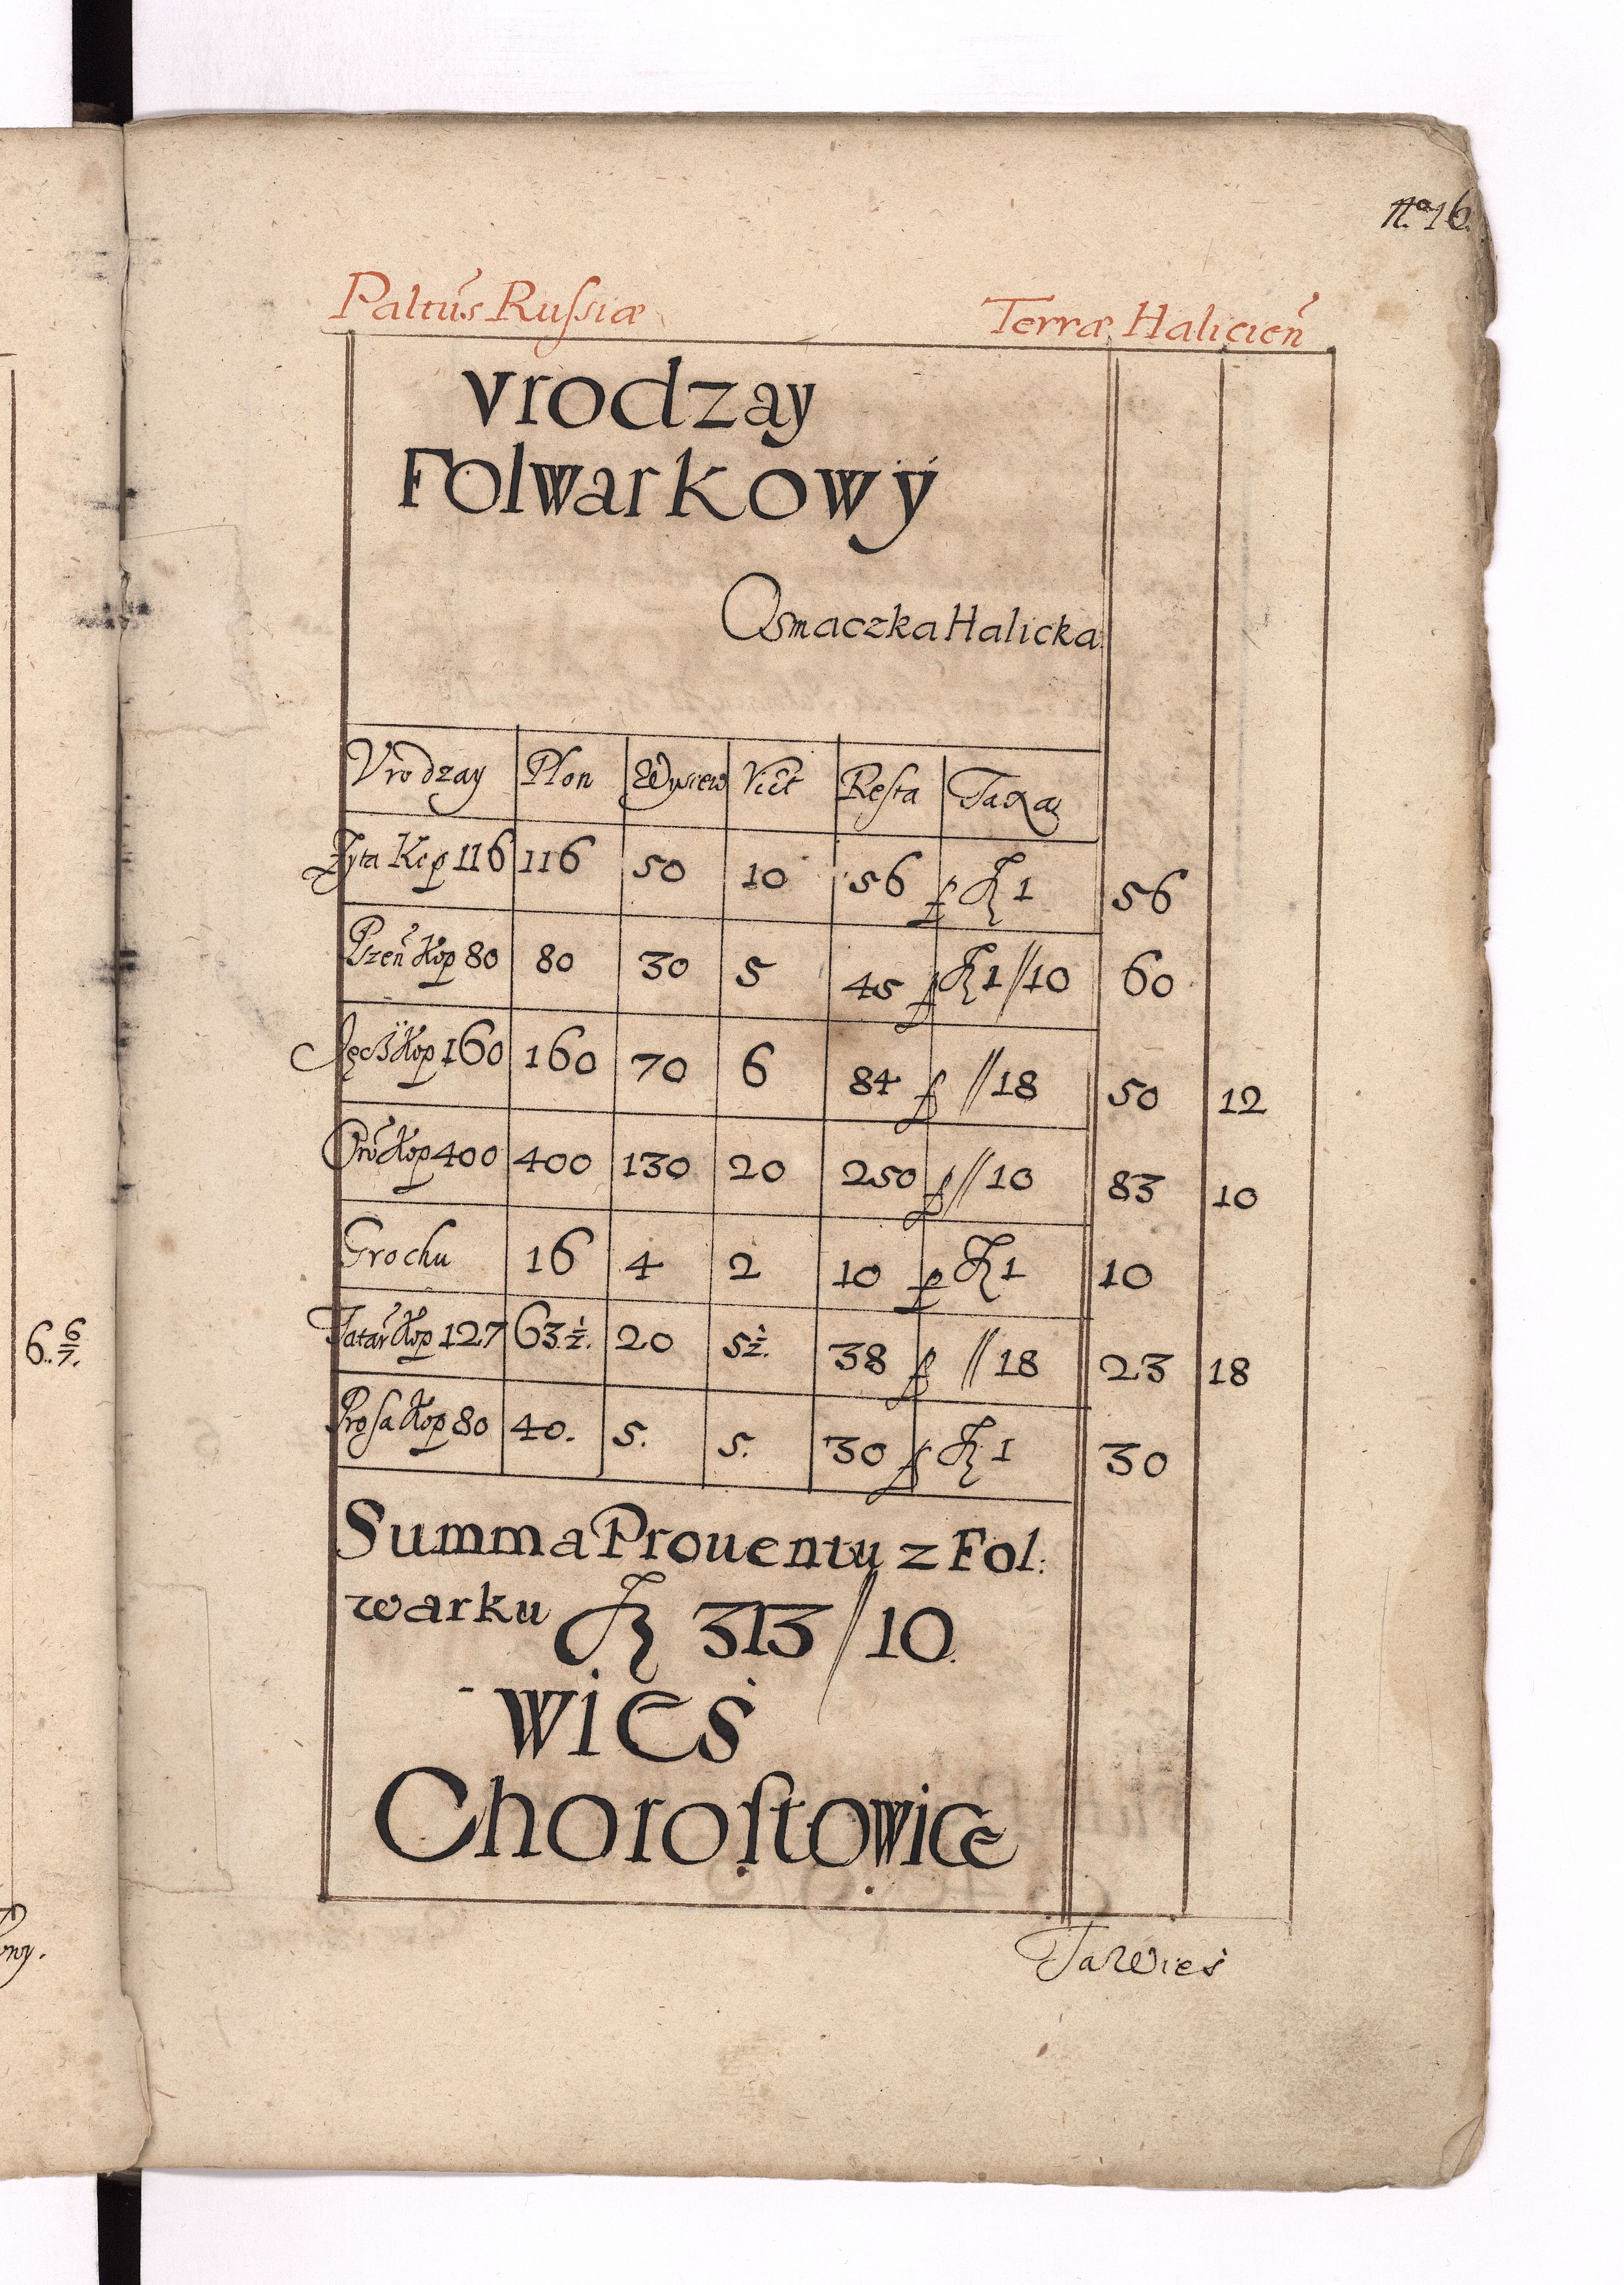 n.º 16.
Paltús Russiæ Terræ Halicień
Vrodzay
Folwarkowy
Osmaczka Halicka
Vrodzay Plon Wysiew Vict Resta Taxa
Zyta Kop 116 116 50 10 56 p fl 1 56
Pszeń Kop 80 80 30 5 45 p fl 1//10 60
Jęcż Kop 160 160 70 6 84 p //18 50 12
Ow̃ Kop 400 400 130 20 250 p //10 83 10
Grochu 16 4 2 10 p fl 1 10
Tatar̃ Kop 127 63.½. 20 5½. 38 p //18 23 18
Prosa Kop 80 40. 5. 5. 30 p fl 1 30
Summa Prouentu z Fol:
warku fl 313//10.
wieś
Chorostowice
Ta Wieś
6..6/7.